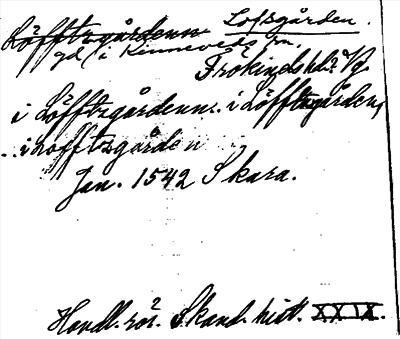 Löfftzgårdenn Lofsgården.
gd i Kinneveds sn,
Frökinds hd. Vg
i Löfftzgårdenn.. i Löfftzgården,
.. i Lofftzgården
Jan. 1542 Skara.
Handl. rör. Skand. hist. XXIX.